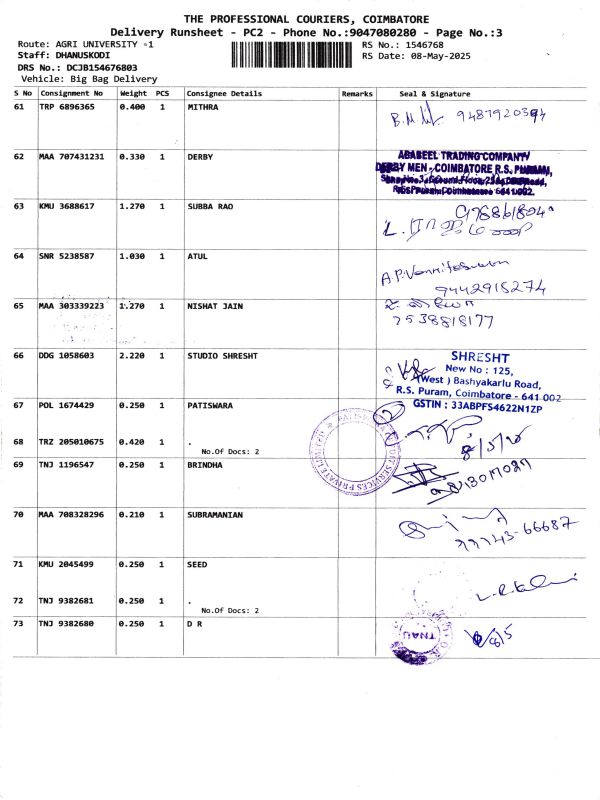 THE PROFESSIONAL COURIERS, COIMBATORE
Delivery Runsheet - PC2 - Phone No.:9047080280 - Page No.:3
Route: AGRI UNIVERSITY -1
RS No.: 1546768
Staff: DHANUSKODI
RS Date: 08-May-2025
DRS No.: DCJB154676803
Vehicle: Big Bag Delivery
S No Consignment No Weight PCS Consignee Details Remarks Seal & Signature
61 TRP 6896365 0.400 1 MITHRA
62 MAA 707431231 0.330 1 DERBY
ABABEEL TRADING COMPANY
DERBY MEN - COIMBATORE R.S. PURAM,
R.S. Puram, Coimbatore - 641 002.
63 KMU 3688617 1.270 1 SUBBA RAO
64 SNR 5238587 1.030 1 ATUL
9442918274
65 MAA 303339223 1.270 1 NISHAT JAIN
7538818177
66 DDG 1058603 2.220 1 STUDIO SHRESHT
SHRESHT
New No : 125,
(West) Bashyakarlu Road,
R.S. Puram, Coimbatore - 641 002
GSTIN : 33ABPFS4622N1ZP
67 POL 1674429 0.250 1 PATISWARA
2
68 TRZ 205010675 0.420 1 .
No.Of Docs: 2
69 TNJ 1196547 0.250 1 BRINDHA
70 MAA 708328296 0.210 1 SUBRAMANIAN
77743-66687
71 KMU 2045499 0.250 1 SEED
72 TNJ 9382681 0.250 1 .
No.Of Docs: 2
73 TNJ 9382680 0.250 1 D R
TNAU